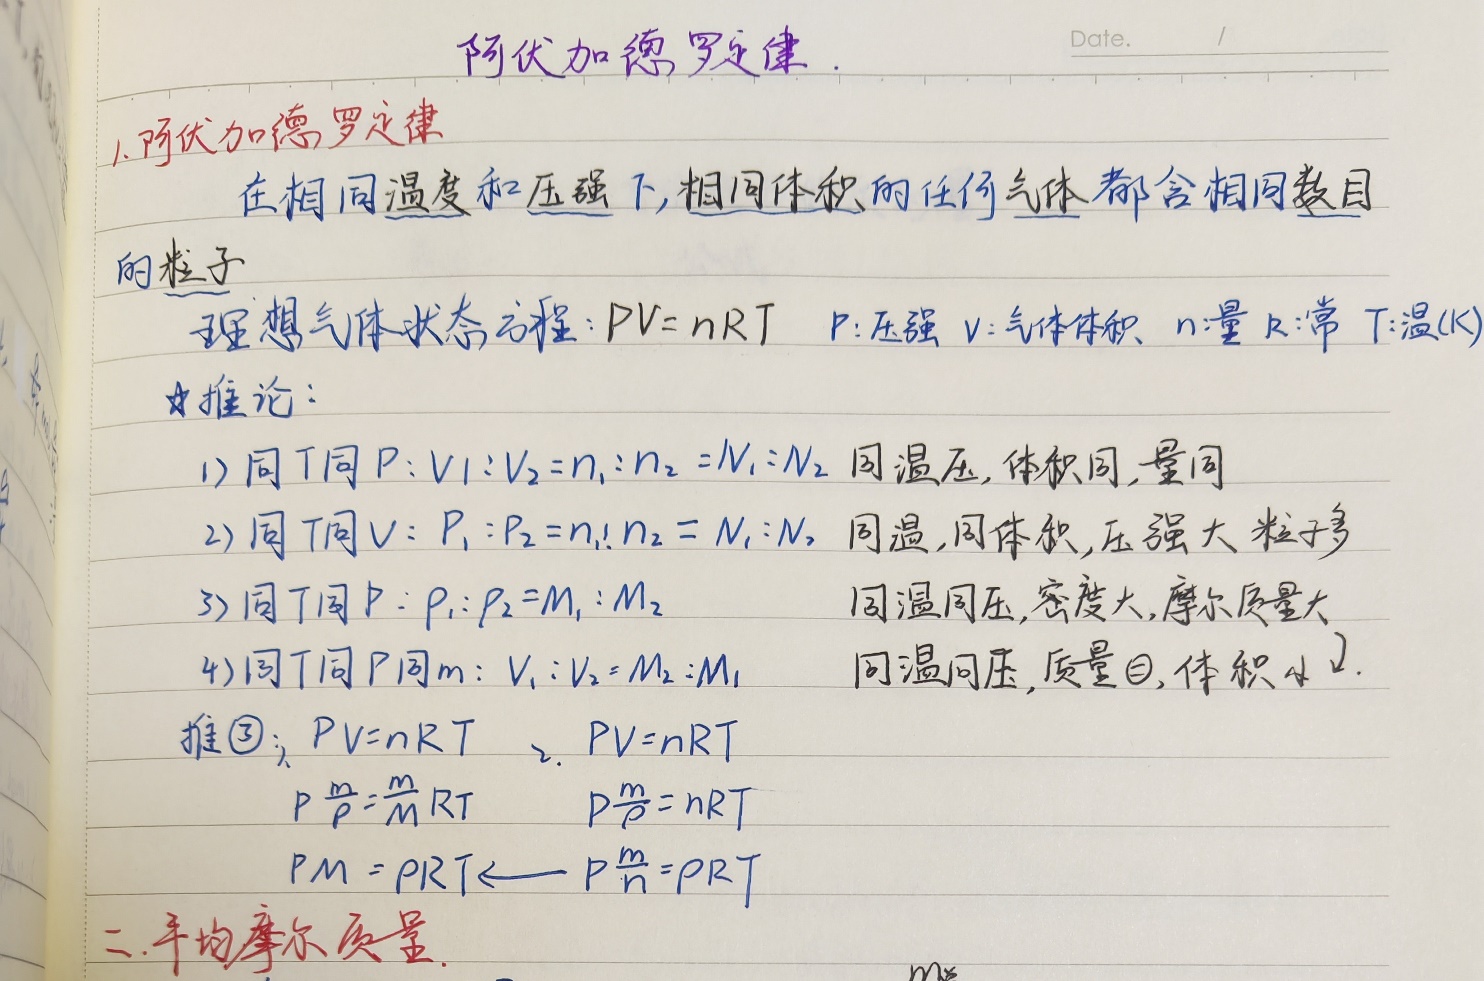 阿伏加德罗定律.
Date. /
1.阿伏加德罗定律
在相同温度和压强下,相同体积的任何气体都含相同数目
的粒子
理想气体状态方程:PV=nRT P:压强 V:气体体积 n:量 R:常 T:温(K)
☆推论:
1)同T同P:V1:V₂=n₁:n₂=N₁:N₂ 同温压,体积同,量同
2)同T同V:P₁:P₂=n₁:n₂=N₁:N₂ 同温,同体积,压强大粒子多
3)同T同P:ρ₁:ρ₂=M₁:M₂ 同温同压,密度大,摩尔质量大
4)同T同P同m:V₁:V₂=M₂:M₁ 同温同压,质量,体积小
推③:1, PV=nRT 2. PV=nRT
P m/ρ = m/M RT P m/ρ = nRT
PM=ρRT ← P m/n = ρRT
二.平均摩尔质量.